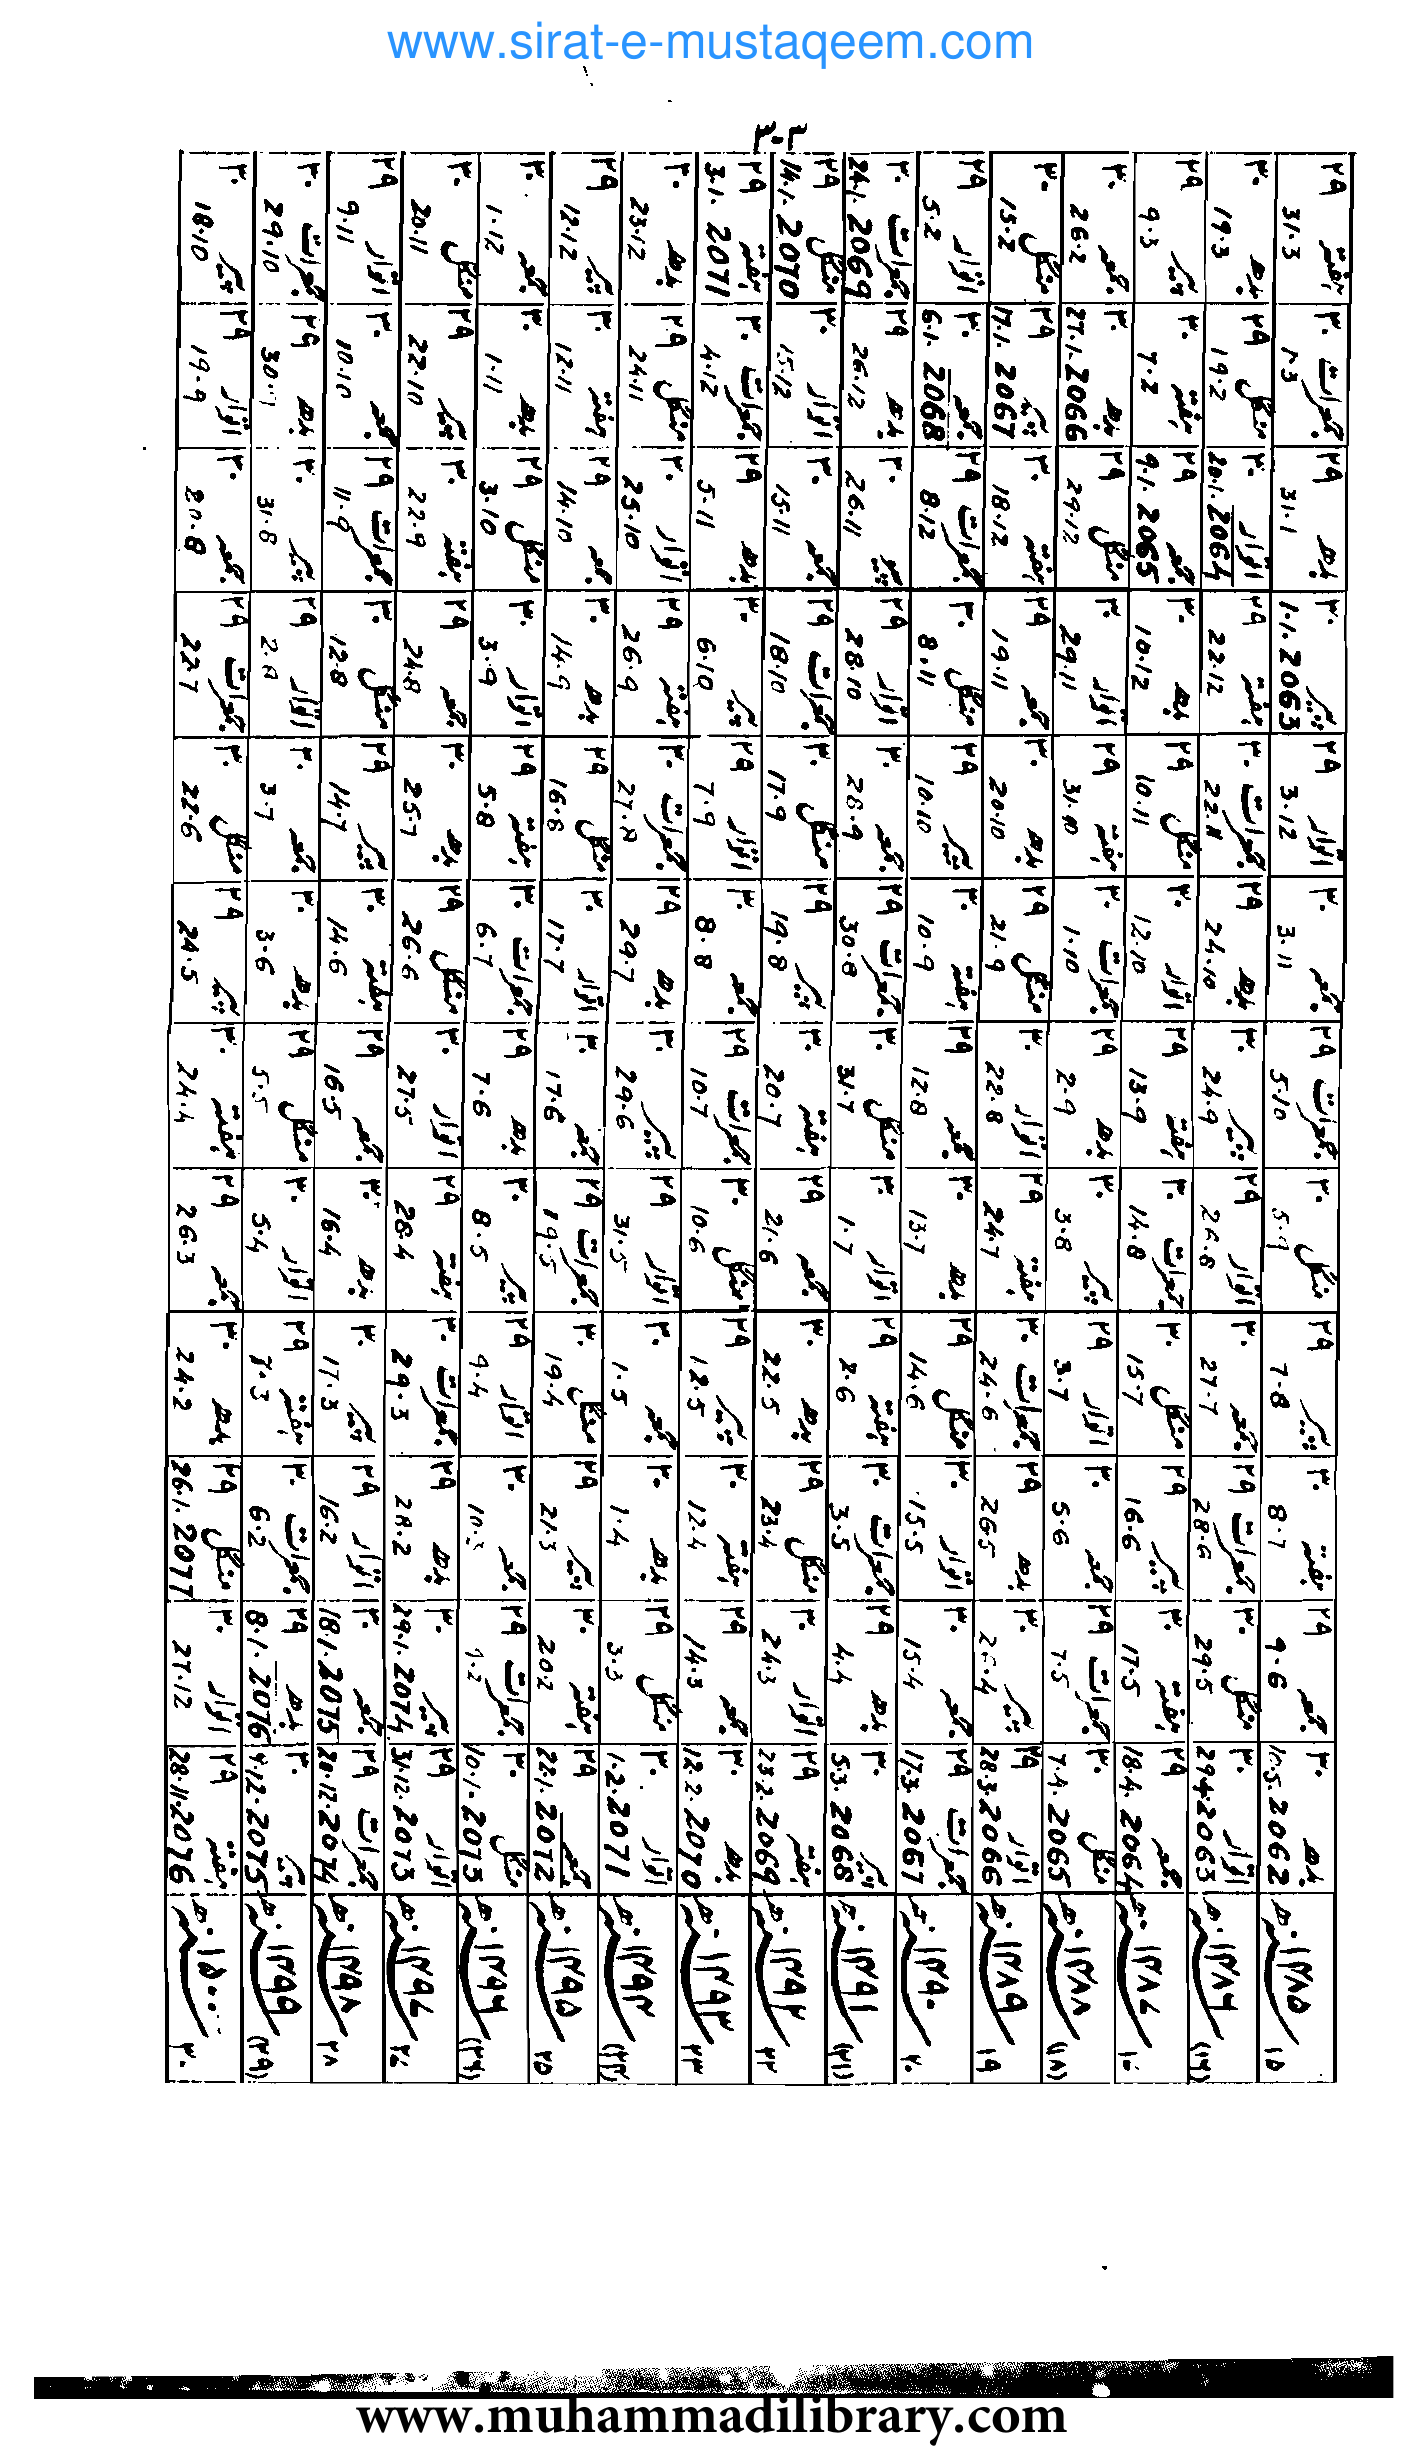 www.sirat-e-mustaqeem.com
۳۰۲
۱۵ ۱۴۸۵ھ بدھ ۳۰ 10.5.2062 جمعہ ۲۹ 9.6 ہفتہ ۳۰ 8.7 پیر ۲۹ 7.8 منگل ۳۰ 5.9 جمعرات ۲۹ 5.10 جمعہ ۳۰ 3.11 اتوار ۲۹ 3.12 پیر ۳۰ 1.1.2063 بدھ ۲۹ 31.1 جمعرات ۳۰ 1.3 ہفتہ ۲۹ 31.3
(۱۶) ۱۴۸۶ھ اتوار ۳۰ 29.4.2063 منگل ۳۰ 29.5 جمعرات ۲۹ 28.6 جمعہ ۳۰ 27.7 اتوار ۲۹ 26.8 پیر ۳۰ 24.9 بدھ ۲۹ 24.10 جمعرات ۳۰ 22.11 ہفتہ ۲۹ 22.12 اتوار ۳۰ 20.1.2064 منگل ۲۹ 19.2 بدھ ۳۰ 19.3
۱۷ ۱۴۸۷ھ جمعہ ۲۹ 18.4.2064 ہفتہ ۳۰ 17.5 پیر ۲۹ 16.6 منگل ۳۰ 15.7 جمعرات ۳۰ 14.8 ہفتہ ۲۹ 13.9 اتوار ۳۰ 12.10 منگل ۲۹ 10.11 بدھ ۳۰ 10.12 جمعہ ۲۹ 9.1.2065 ہفتہ ۳۰ 7.2 پیر ۲۹ 9.3
(۱۸) ۱۴۸۸ھ منگل ۳۰ 7.4.2065 جمعرات ۲۹ 7.5 جمعہ ۳۰ 5.6 اتوار ۲۹ 3.7 پیر ۳۰ 3.8 بدھ ۲۹ 2.9 جمعرات ۳۰ 1.10 ہفتہ ۲۹ 31.10 اتوار ۳۰ 29.11 منگل ۲۹ 29.12 بدھ ۳۰ 27.1.2066 جمعہ ۳۰ 26.2
۱۹ ۱۴۸۹ھ اتوار ۲۹ 28.3.2066 پیر ۳۰ 26.4 بدھ ۲۹ 26.5 جمعرات ۳۰ 24.6 ہفتہ ۲۹ 24.7 اتوار ۳۰ 22.8 منگل ۲۹ 21.9 بدھ ۳۰ 20.10 جمعہ ۲۹ 19.11 ہفتہ ۳۰ 18.12 پیر ۲۹ 17.1.2067 منگل ۳۰ 15.2
۲۰ ۱۴۹۰ھ جمعرات ۲۹ 17.3.2067 جمعہ ۳۰ 15.4 اتوار ۳۰ 15.5 منگل ۲۹ 14.6 بدھ ۳۰ 13.7 جمعہ ۲۹ 12.8 ہفتہ ۳۰ 10.9 پیر ۲۹ 10.10 منگل ۳۰ 8.11 جمعرات ۲۹ 8.12 جمعہ ۳۰ 6.1.2068 اتوار ۲۹ 5.2
(۲۱) ۱۴۹۱ھ پیر ۳۰ 5.3.2068 بدھ ۲۹ 4.4 جمعرات ۳۰ 3.5 ہفتہ ۲۹ 2.6 اتوار ۳۰ 1.7 منگل ۳۰ 31.7 جمعرات ۲۹ 30.8 جمعہ ۳۰ 28.9 اتوار ۲۹ 28.10 پیر ۳۰ 26.11 بدھ ۲۹ 26.12 جمعرات ۳۰ 24.1.2069
۲۲ ۱۴۹۲ھ ہفتہ ۲۹ 23.2.2069 اتوار ۳۰ 24.3 منگل ۲۹ 23.4 بدھ ۳۰ 22.5 جمعہ ۲۹ 21.6 ہفتہ ۳۰ 20.7 پیر ۲۹ 19.8 منگل ۳۰ 17.9 جمعرات ۲۹ 18.10 جمعہ ۳۰ 15.11 اتوار ۳۰ 15.12 منگل ۲۹ 14.1.2070
۲۳ ۱۴۹۳ھ بدھ ۳۰ 12.2.2070 جمعہ ۲۹ 14.3 ہفتہ ۳۰ 12.4 پیر ۲۹ 12.5 منگل ۳۰ 10.6 جمعرات ۲۹ 10.7 جمعہ ۳۰ 8.8 اتوار ۲۹ 7.9 پیر ۳۰ 6.10 بدھ ۲۹ 5.11 جمعرات ۳۰ 4.12 ہفتہ ۲۹ 3.1.2071
(۲۴) ۱۴۹۴ھ اتوار ۳۰ 1.2.2071 منگل ۲۹ 3.3 بدھ ۳۰ 1.4 جمعہ ۳۰ 1.5 اتوار ۲۹ 31.5 پیر ۳۰ 29.6 بدھ ۲۹ 29.7 جمعرات ۳۰ 27.8 ہفتہ ۲۹ 26.9 اتوار ۳۰ 25.10 منگل ۲۹ 24.11 بدھ ۳۰ 23.12
۲۵ ۱۴۹۵ھ جمعہ ۲۹ 22.1.2072 ہفتہ ۳۰ 20.2 پیر ۲۹ 21.3 منگل ۳۰ 19.4 جمعرات ۲۹ 19.5 جمعہ ۳۰ 17.6 اتوار ۳۰ 17.7 منگل ۲۹ 16.8 بدھ ۳۰ 14.9 جمعہ ۲۹ 14.10 ہفتہ ۳۰ 12.11 پیر ۲۹ 12.12
(۲۶) ۱۴۹۶ھ منگل ۳۰ 10.1.2073 جمعرات ۲۹ 9.2 جمعہ ۳۰ 10.3 اتوار ۲۹ 9.4 پیر ۳۰ 8.5 بدھ ۲۹ 7.6 جمعرات ۳۰ 6.7 ہفتہ ۲۹ 5.8 اتوار ۳۰ 3.9 منگل ۲۹ 3.10 بدھ ۳۰ 1.11 جمعہ ۳۰ 1.12
۲۷ ۱۴۹۷ھ اتوار ۲۹ 31.12.2073 پیر ۳۰ 29.1.2074 بدھ ۲۹ 28.2 جمعرات ۳۰ 29.3 ہفتہ ۲۹ 28.4 اتوار ۳۰ 27.5 منگل ۲۹ 26.6 بدھ ۳۰ 25.7 جمعہ ۲۹ 24.8 ہفتہ ۳۰ 22.9 پیر ۲۹ 22.10 منگل ۳۰ 20.11
۲۸ ۱۴۹۸ھ جمعرات ۲۹ 20.12.2074 جمعہ ۳۰ 18.1.2075 اتوار ۲۹ 16.2 پیر ۳۰ 17.3 بدھ ۳۰ 16.4 جمعہ ۲۹ 16.5 ہفتہ ۳۰ 14.6 پیر ۲۹ 14.7 منگل ۳۰ 12.8 جمعرات ۲۹ 11.9 جمعہ ۳۰ 10.10 اتوار ۲۹ 9.11
(۲۹) ۱۴۹۹ھ پیر ۳۰ 9.12.2075 بدھ ۲۹ 8.1.2076 جمعرات ۳۰ 6.2 ہفتہ ۲۹ 7.3 اتوار ۳۰ 5.4 منگل ۲۹ 5.5 بدھ ۳۰ 3.6 جمعہ ۳۰ 3.7 اتوار ۲۹ 2.8 پیر ۳۰ 31.8 بدھ ۲۹ 30.9 جمعرات ۳۰ 29.10
۳۰ ۱۵۰۰ھ ہفتہ ۲۹ 28.11.2076 اتوار ۳۰ 27.12 منگل ۲۹ 26.1.2077 بدھ ۳۰ 24.2 جمعہ ۲۹ 26.3 ہفتہ ۳۰ 24.4 پیر ۲۹ 24.5 منگل ۳۰ 22.6 جمعرات ۲۹ 22.7 جمعہ ۳۰ 20.8 اتوار ۲۹ 19.9 پیر ۳۰ 18.10
www.muhammadilibrary.com